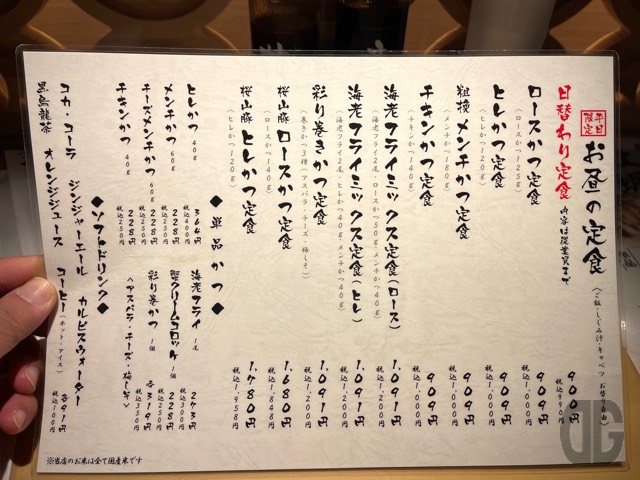 平日限定
お昼の定食
(ご飯・しじみ汁・キャベツ お替り自由)
日替わり定食 内容は従業員まで 909円
税込990円
ロースかつ定食 909円
(ロースかつ125g) 税込1,000円
ヒレかつ定食 909円
(ヒレかつ120g) 税込1,000円
粗挽メンチかつ定食 909円
(メンチかつ180g) 税込1,000円
チキンかつ定食 909円
(チキンかつ140g) 税込1,000円
海老フライミックス定食(ロース) 1,091円
(海老フライ2尾、ロースかつ50g、メンチかつ40g) 税込1,200円
海老フライミックス定食(ヒレ) 1,091円
(海老フライ2尾、ヒレかつ40g、メンチかつ40g) 税込1,200円
彩り巻きかつ定食 1,091円
(巻きかつ3種(アスパラ・チーズ・梅しそ)) 税込1,200円
桜山豚 ロースかつ定食 1,680円
(ロースかつ140g) 税込1,848円
桜山豚 ヒレかつ定食 1,780円
(ヒレかつ120g) 税込1,958円
◆単品かつ◆
ヒレかつ 40g 364円
税込400円
メンチかつ 60g 228円
税込250円
チーズメンチかつ 60g 228円
税込250円
チキンかつ 40g 228円
税込250円
海老フライ 1尾 273円
税込300円
蟹クリームコロッケ 1個 228円
税込250円
彩り巻かつ 1個 各319円
<アスパラ・チーズ・梅しそ> 税込350円
◆ソフトドリンク◆
コカ・コーラ ジンジャーエール カルピスウォーター 各91円
黒烏龍茶 オレンジジュース コーヒー(ホット・アイス) 税込100円
※当店のお米は全て国産米です
DG